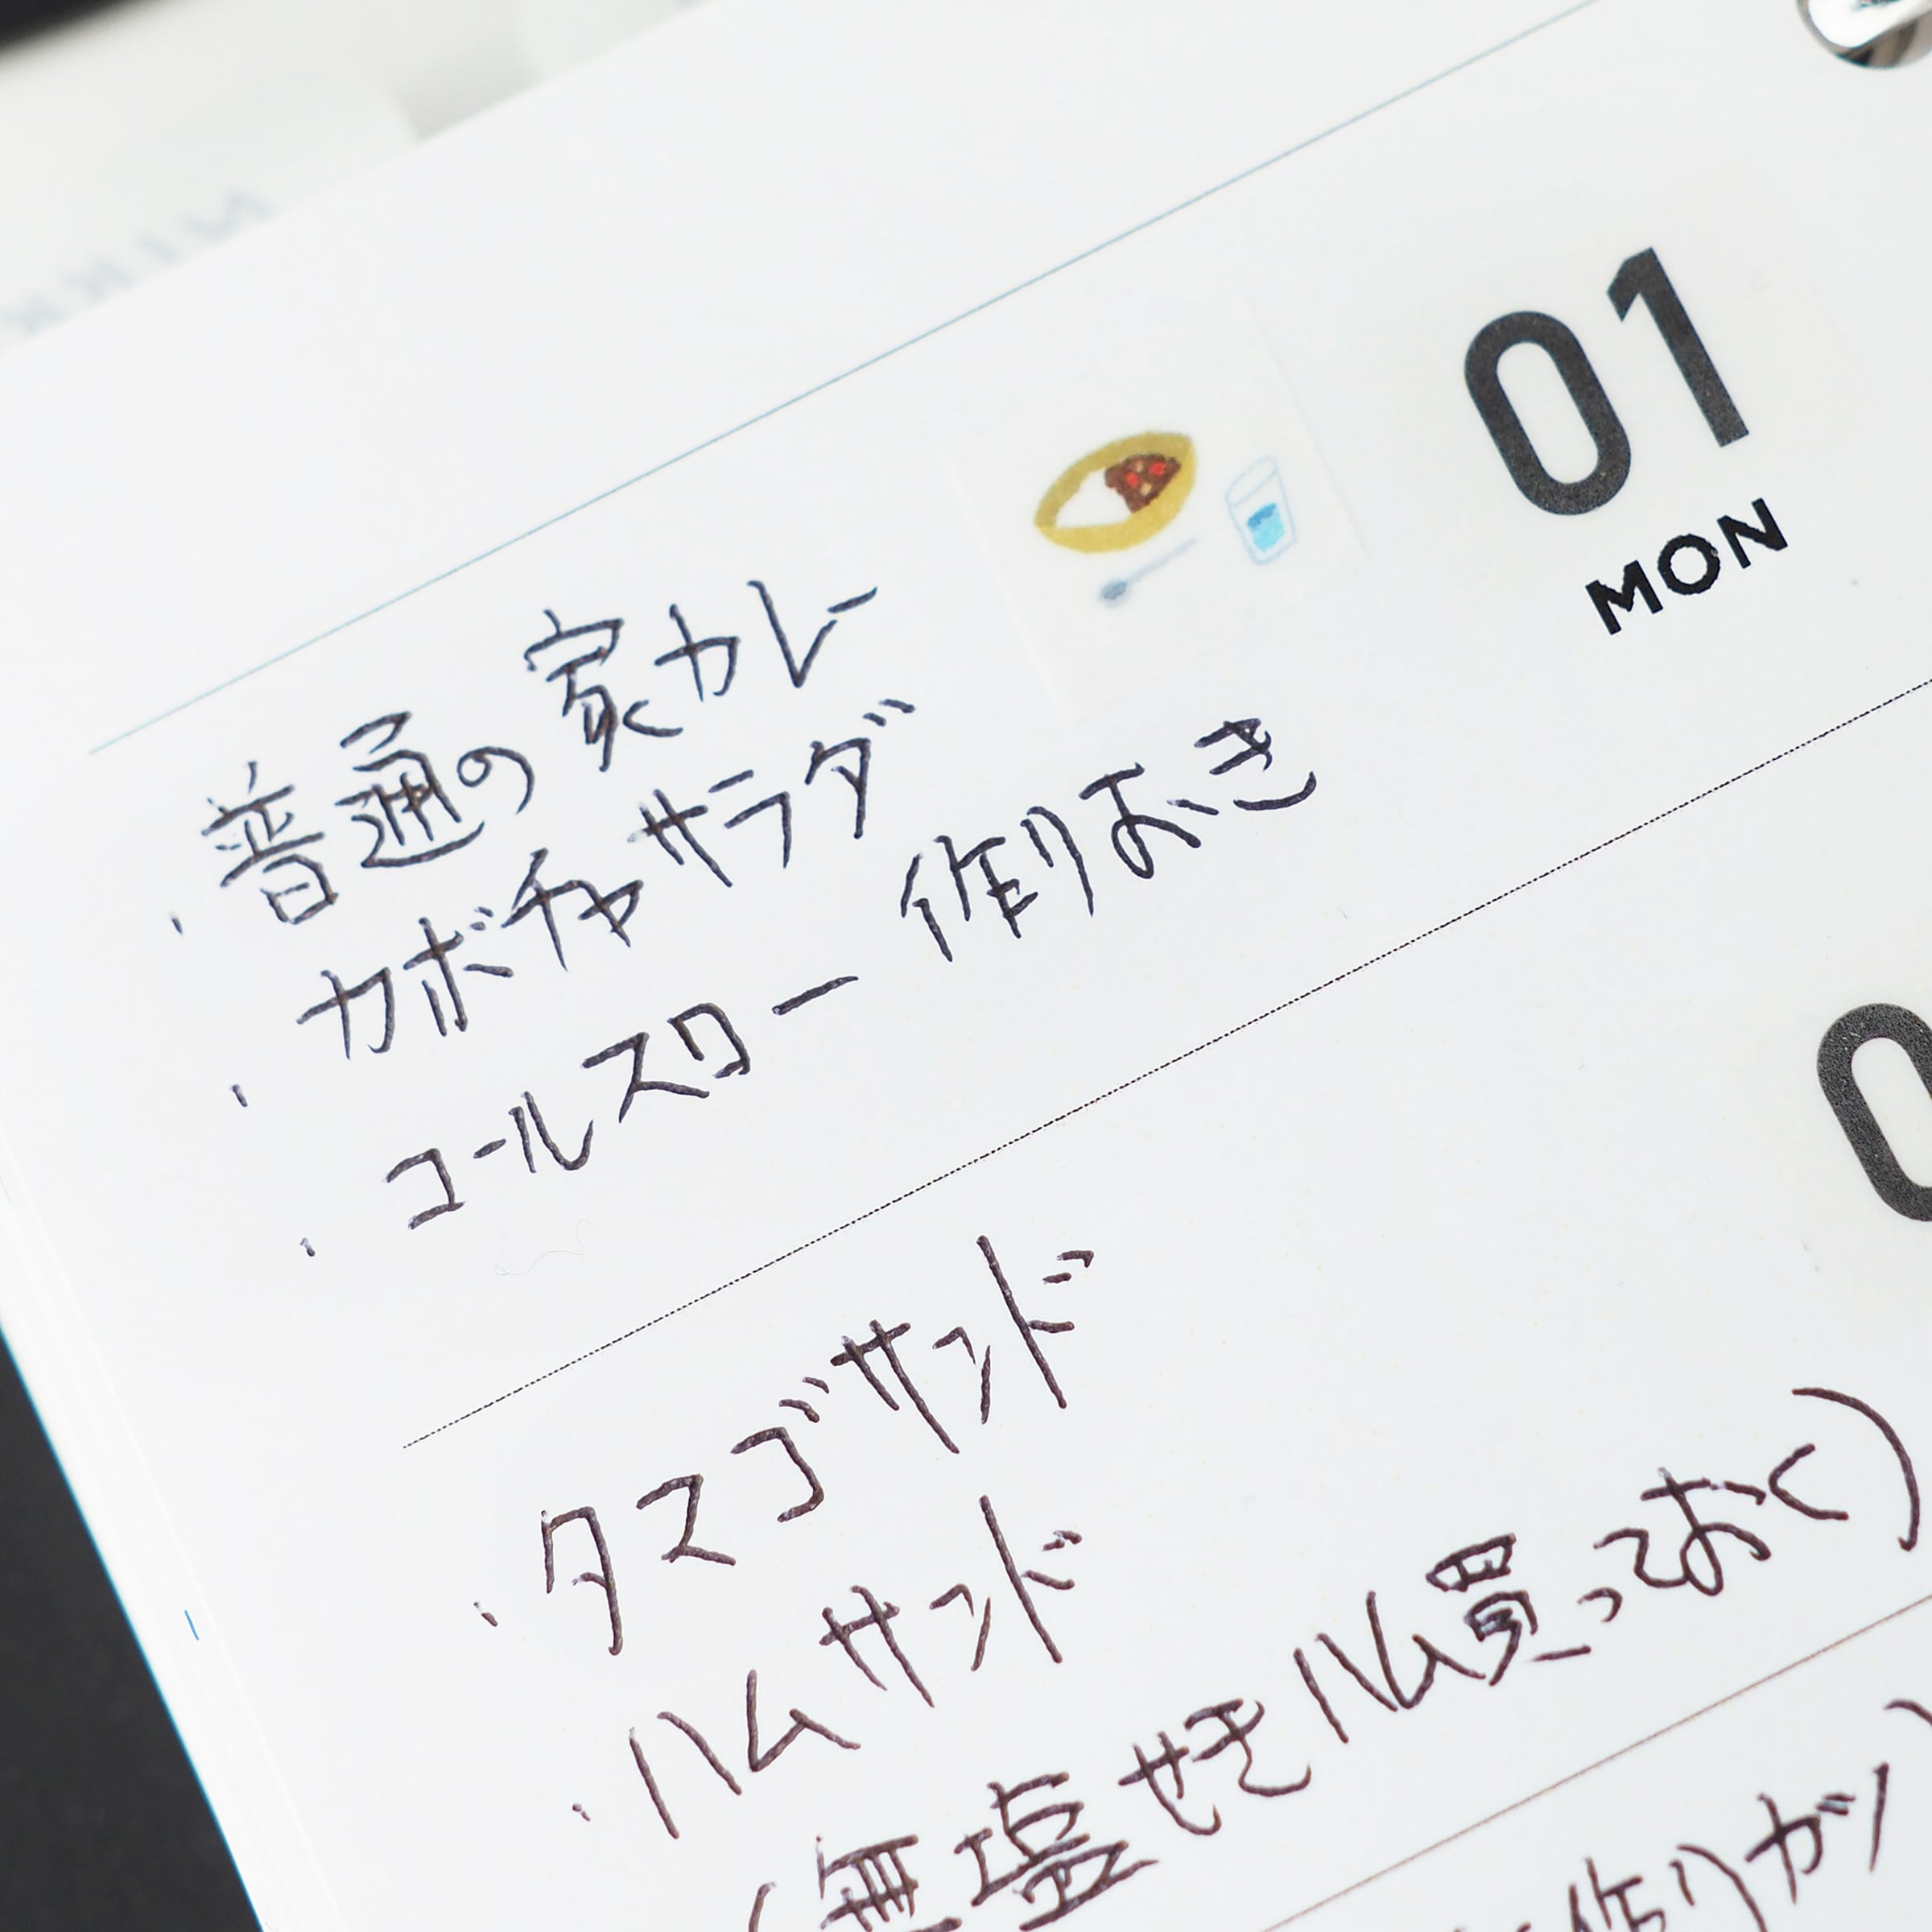 01
MON
・普通の家カレー
・カボチャサラダ
・コールスロー 作りおき
・タマゴサンド
・ハムサンド
(無塩せきハム買っておく)
作りガ